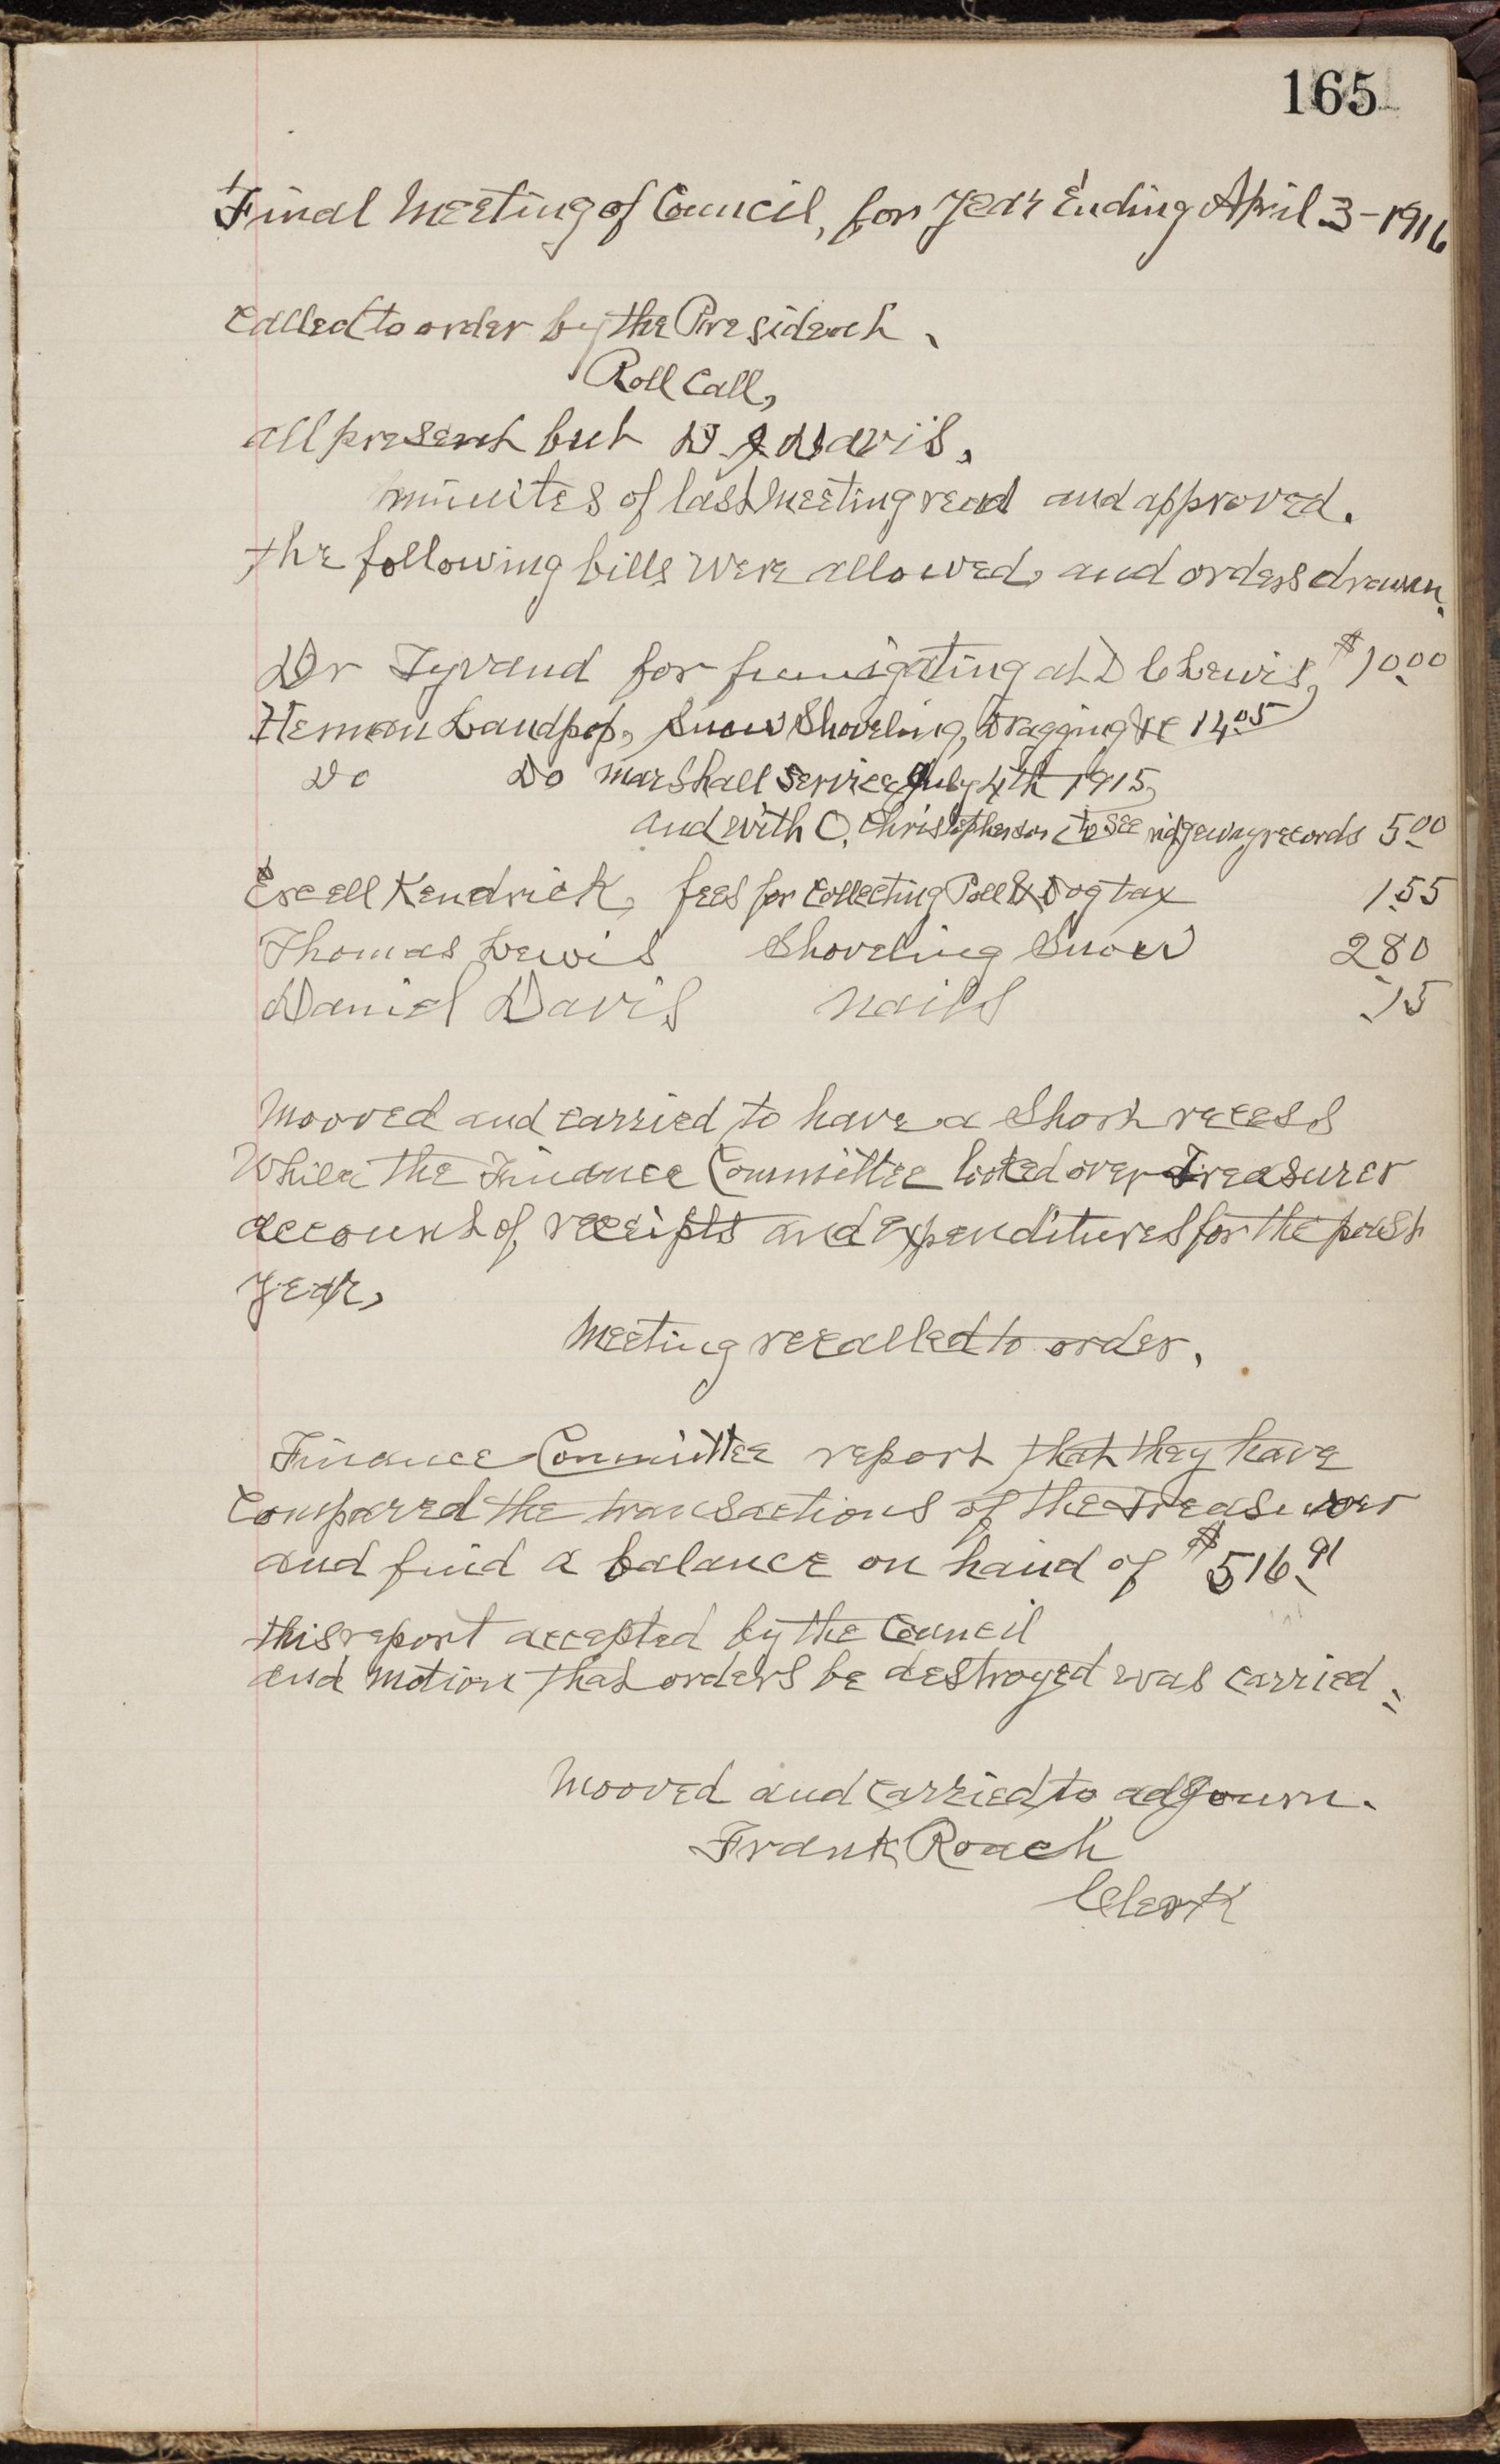 165
Final Meeting of Council, for Year Ending April 3-1916
Called to order by the President.
Roll Call,
all present but D J Davis.
minuites of last Meeting read and approved.
the following bills were allowed, and orders drawn.
Dr Tyvand for fumigating at D C Lewis, $10.00
Heman Landpop, Snow Shoveling, Dragging &c 14.05
Do Do Marshall Service July 4th 1915,
and with O. Christopherson to see ridgeway records 5.00
Excell Kendrick, fees for Collecting Poll & Dog tax 1.55
Thomas Lewis Shoveling Snow 2.80
Daniel Davis nails .15
Mooved and carried to have a Short recess
While the Finance Committee looked over Treasurer
account of receipts and expenditures for the past
year,
Meeting recalled to order.
Finance Committee report that they have
Comparred the transactions of the Treasurer
and find a balance on hand of $516.91
this report accepted by the Council
and Motion that orders be destroyed was carried.
Mooved and carried to adjourn.
Frank Roach
Clerk